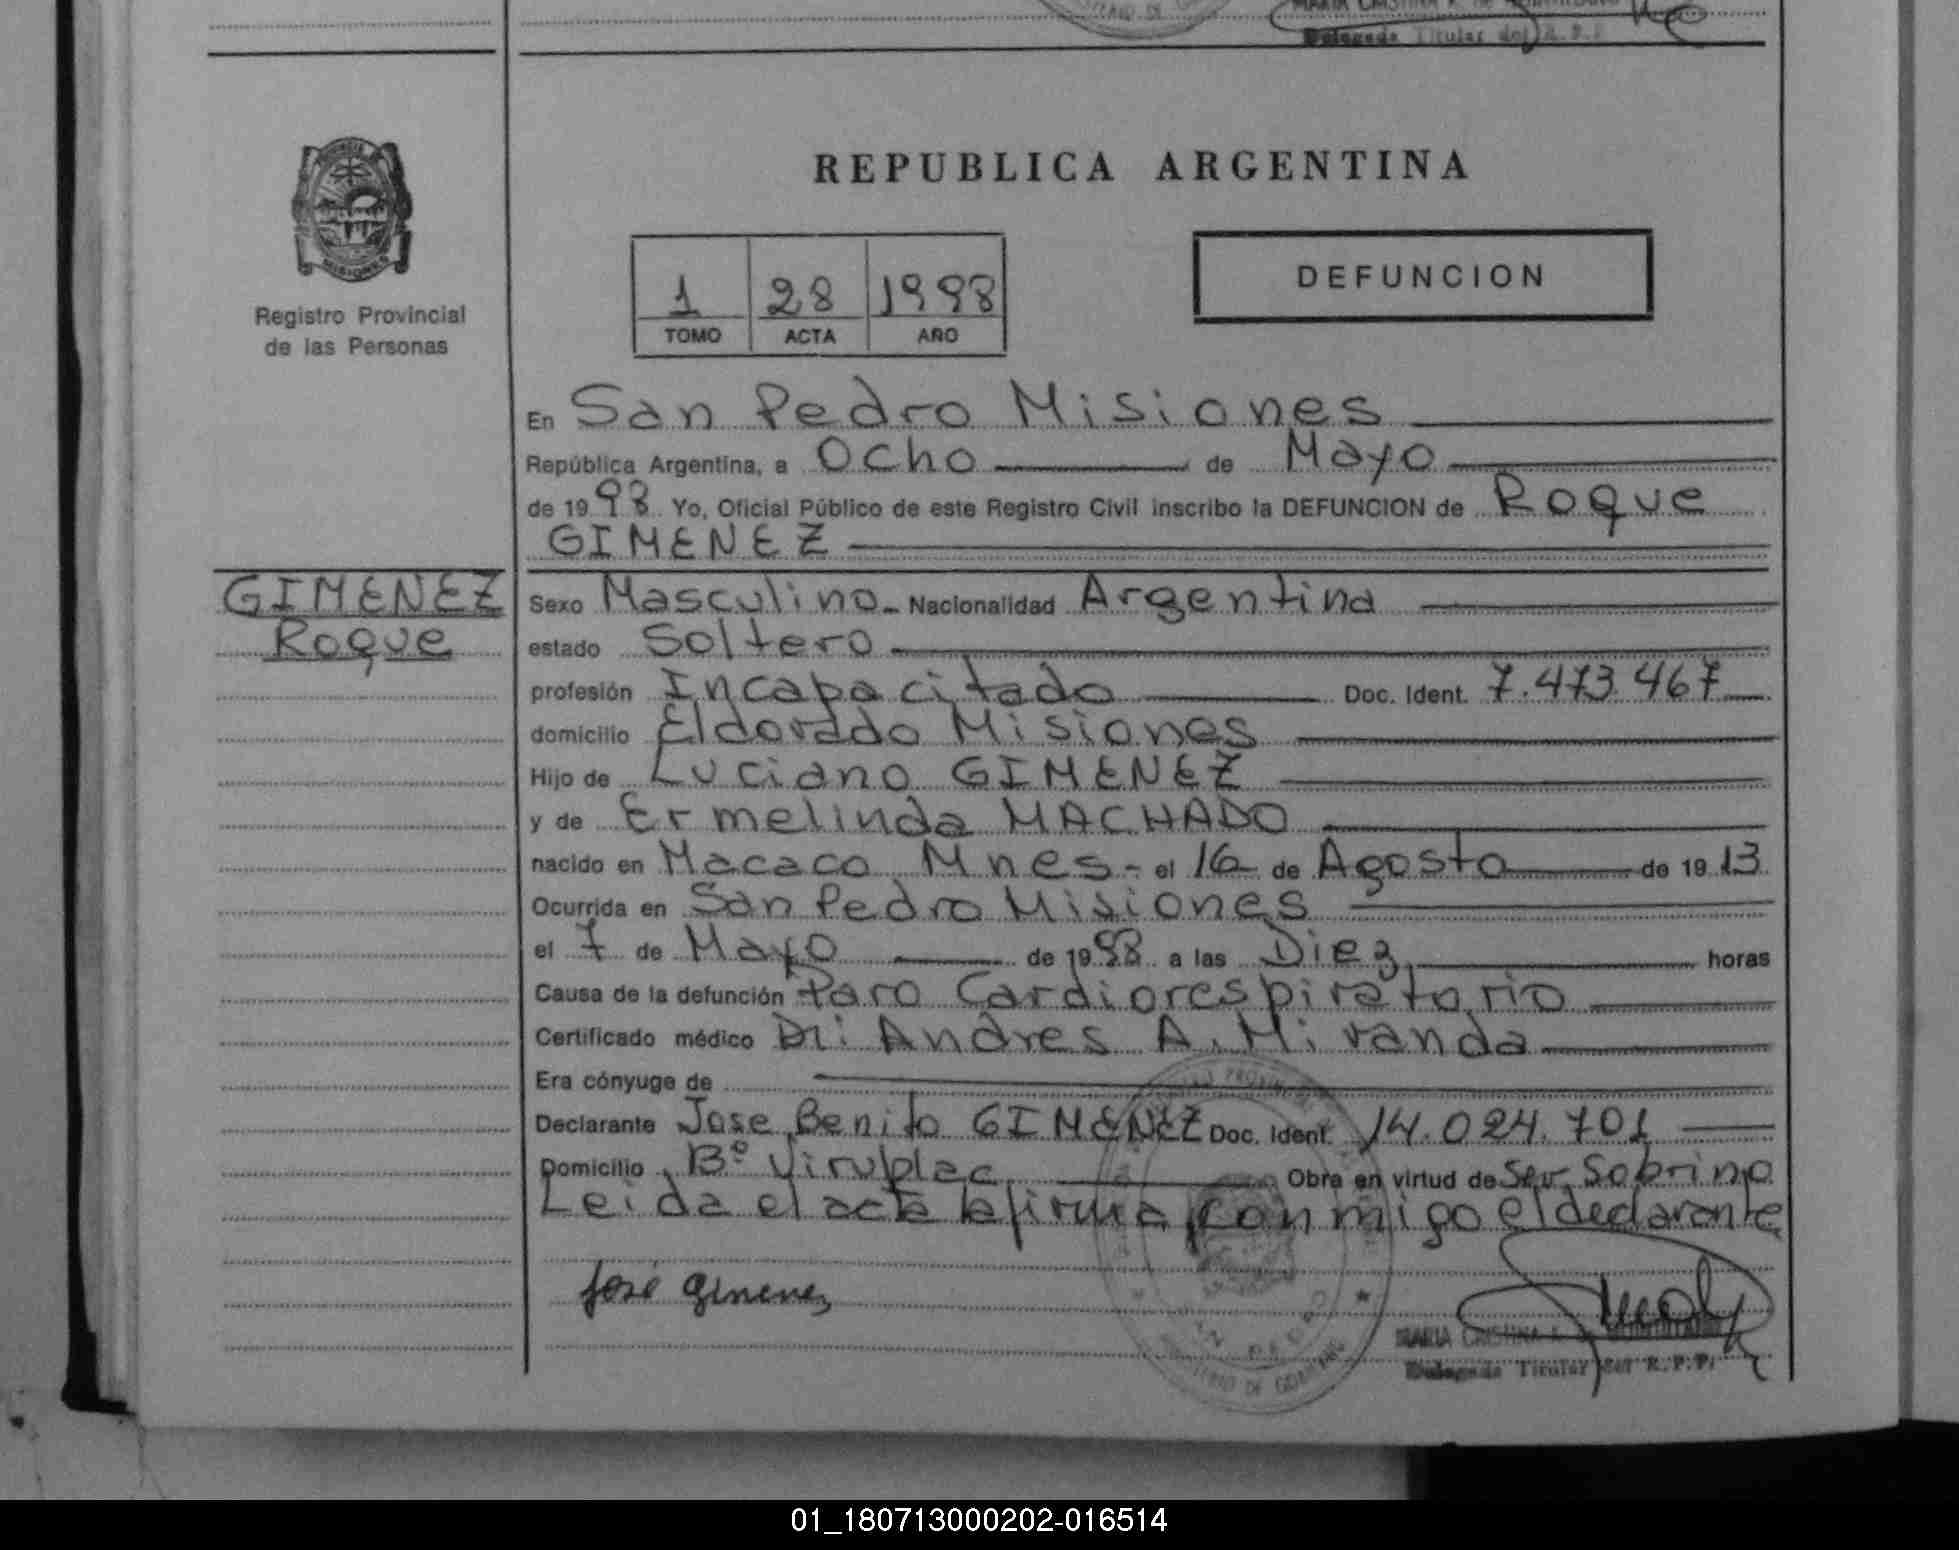 Delegada Titular del R.P.P.
REPUBLICA ARGENTINA
PROVINCIA
MISIONES
Registro Provincial
de las Personas
1 28 1998
TOMO ACTA AÑO
DEFUNCION
En San Pedro Misiones
República Argentina, a Ocho de Mayo
de 1998 Yo, Oficial Público de este Registro Civil inscribo la DEFUNCION de Roque
GIMENEZ
GIMENEZ
Roque
Sexo Masculino Nacionalidad Argentina
estado Soltero
profesión Incapacitado Doc. Ident. 7.473.467
domicilio Eldorado Misiones
Hijo de Luciano GIMENEZ
y de Ermelinda MACHADO
nacido en Macaco Mnes- el 16 de Agosto de 1913
Ocurrida en San Pedro Misiones
el 7 de Mayo de 1998 a las Diez horas
Causa de la defunción Paro Cardiorespiratorio
Certificado médico Dr: Andres A. Miranda
Era cónyuge de
Declarante Jose Benito GIMENEZ Doc. Ident. 14.024.701
Domicilio Bº Obra en virtud de Ser Sobrino
Leida el acta la firma conmigo el declarante
José Gimenez
MARIA CRISTINA
Delegada Titular del R.P.P.
01_180713000202-016514